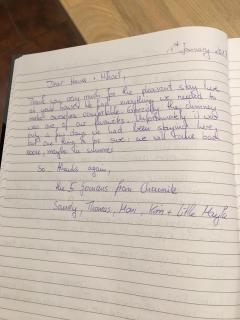 1st January 2013
Dear Hanna + Mikael,
Thank you very much for the pleasant stay here
at your house! We had everything we needed to
make ourselves comfortable. Especially the chimney
was one of our favourites. Unfortunately it was
only a few days we had been staying here,
but one thing is for sure: we will come back
soon, maybe in summer
So thanks again,
the 5 Germans from Chemnitz
Sandy, Thomas, Mom, Kim + little Mayla